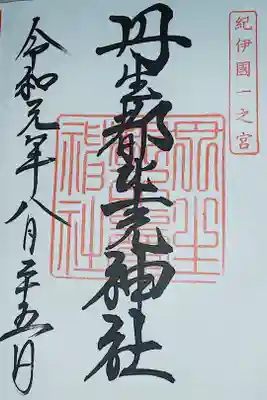 紀伊國一之宮
丹生都比売神社
令和元年八月二十五日